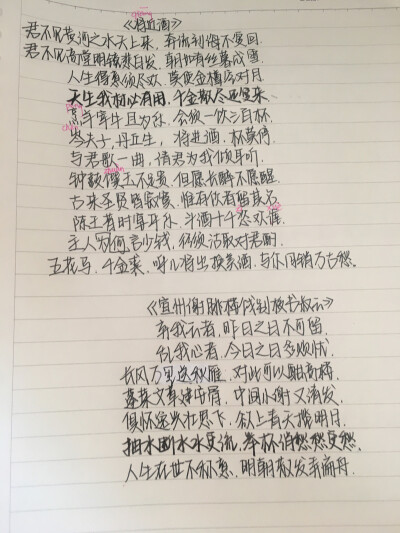 《将进酒》
君不见黄河之水天上来,奔流到海不复回
君不见高堂明镜悲白发,朝如青丝暮成雪
人生得意须尽欢,莫使金樽空对月
天生我材必有用,千金散尽还复来
烹羊宰牛且为乐,会须一饮三百杯
岑夫子,丹丘生,将进酒,杯莫停
与君歌一曲,请君为我倾耳听
钟鼓馔玉不足贵,但愿长醉不愿醒
古来圣贤皆寂寞,惟有饮者留其名
陈王昔时宴平乐,斗酒十千恣欢谑
主人何言少钱,径须沽取对君酌
五花马,千金裘,呼儿将出换美酒,与尔同销万古愁。
《宣州谢朓楼饯别校书叔云》
弃我去者,昨日之日不可留
乱我心者,今日之日多烦忧
长风万里送秋雁,对此可以酣高楼
蓬莱文章建安骨,中间小谢又清发
俱怀逸兴壮思飞,欲上青天揽明月
抽刀断水水更流,举杯消愁愁更愁
人生在世不称意,明朝散发弄扁舟